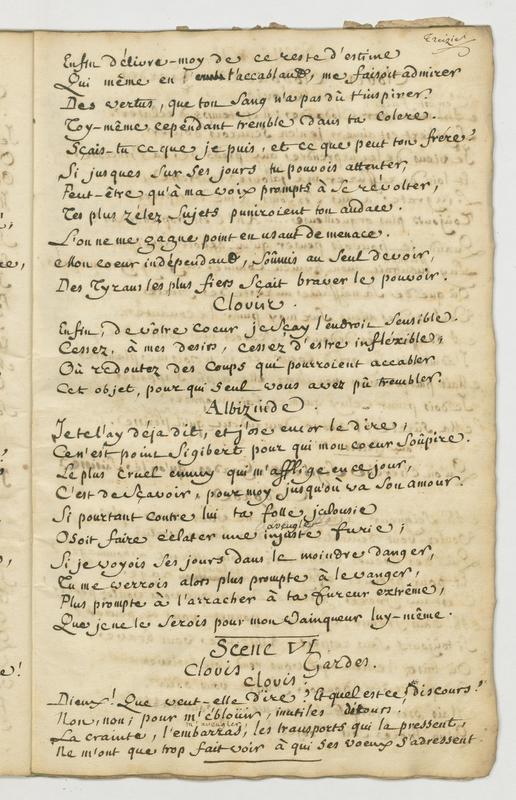 Treizie
Enfin délivre-moy de ce reste d'estime
Qui même en t'accablant, me faisoit admirer
Des vertus, que ton Sang n'a pas dû t'inspirer.
Toy-même cependant tremble dans ta colere.
Sçais-tu ce que je puis, et ce que peut ton frere?
Si jusques sur ses jours tu pouvois attenter,
Peut-être qu'à ma voix prompts à se révolter,
Tes plus zélez Sujets puniroient ton audace.
L'on ne me gagne point en usant de menace.
Mon coeur indépendant, soûmis au seul devoir,
Des Tyrans les plus fiers sçait braver le pouvoir.
Clovis.
Enfin, de votre coeur je sçay l'endroit sensible.
Cessez, à mes desirs, cessez d'estre infléxible;
Où redoutez des coups qui pourroient accabler
Cet objet, pour qui seul vous avez pû trembler.
Albizinde.
Je te l'ay déja dit, et j'ose encor le dire,
Ce n'est point Sigibert pour qui mon coeur soûpire.
Le plus cruel ennuy qui m'afflige en ce jour,
C'est de sçavoir, pour moy jusqu'où va son amour.
Si pourtant contre lui ta folle jalousie
aveugle
Osoit faire éclater une injuste furie;
Si je voyois ses jours dans le moindre danger,
Tu me verrois alors plus prompte à le vanger,
Plus prompte à l'arracher à ta fureur extrême,
Que je ne le serois pour mon Vainqueur luy-même.
Scene VI.
Clovis. Gardes.
Clovis.
Dieux! Que veut-elle dire? Et quel est ce discours?
Non, non; pour m'éblouir, inutiles détours,
m'aveugler
La crainte, l'embarras, les transports qui la pressent,
Ne m'ont que trop fait voir à qui ses voeux s'adressent.